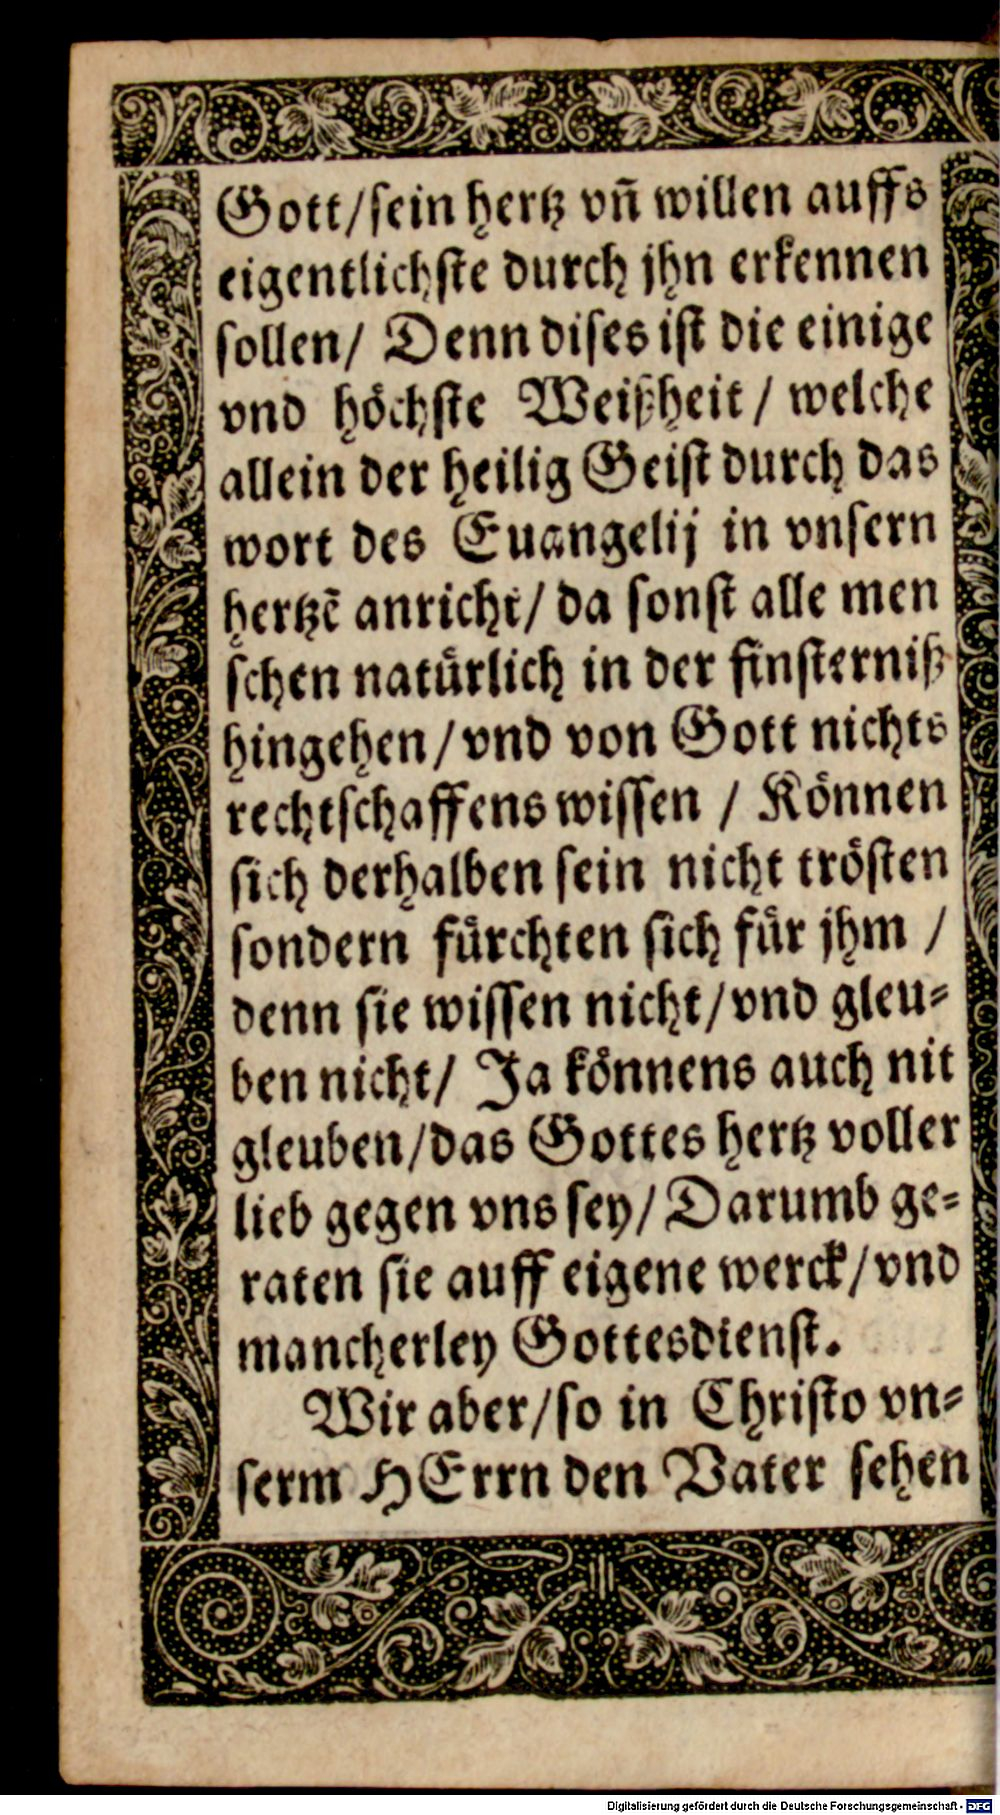 Gott/sein hertz vñ willen auffs
eigentlichste durch jhn erkennen
sollen/ Denn dises ist die einige
vnd höchste Weißheit / welche
allein der heilig Geist durch das
wort des Euangelij in vnsern
hertzẽ anricht/ da sonst alle men
schen natürlich in der finsterniß
hingehen/ vnd von Gott nichts
rechtschaffens wissen / Können
sich derhalben sein nicht trösten
sondern fürchten sich für jhm /
denn sie wissen nicht/ vnd gleu-
ben nicht/ Ja könnens auch nit
gleuben/das Gottes hertz voller
lieb gegen vns sey/ Darumb ge-
raten sie auff eigene werck/ vnd
mancherley Gottesdienst.
Wir aber/so in Christo vn-
serm HErrn den Vater sehen
Digitalisierung gefördert durch die Deutsche Forschungsgemeinschaft - DFG